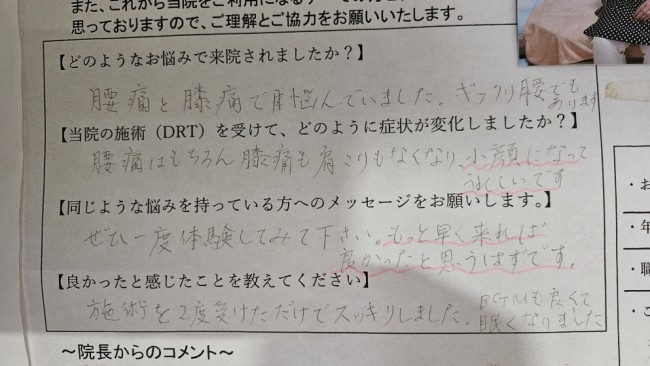 また、これから当院をご利用になる
思っておりますので、ご理解とご協力をお願いいたします。
【どのようなお悩みで来院されましたか？】
腰痛と膝痛で悩んでいました。ギックリ腰でも
あります
【当院の施術（DRT）を受けて、どのように症状が変化しましたか？】
腰痛はもちろん膝痛も肩こりもなくなり、小顔になって
うれしいです
【同じような悩みを持っている方へのメッセージをお願いします。】
ぜひ一度体験してみて下さい。もっと早く来れば
良かったと思うはずです。
【良かったと感じたことを教えてください】
施術を2度受けただけでスッキリしました。BGMも良くて
眠くなりました
～院長からのコメント～
・お
・年
・職
・ご